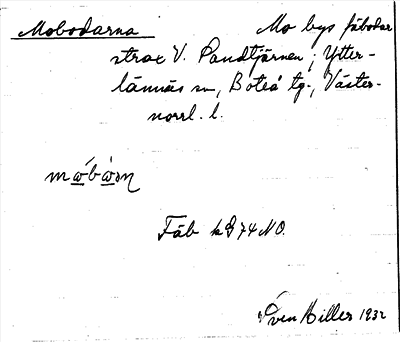 Mobodarna Mo bys fäbodar
strax V. Pandtjärnen; Ytter-
lännäs sn, Boteå tg., Väster-
norrl. l.
Fäb kg 74 NO.
Sven Hiller 1932